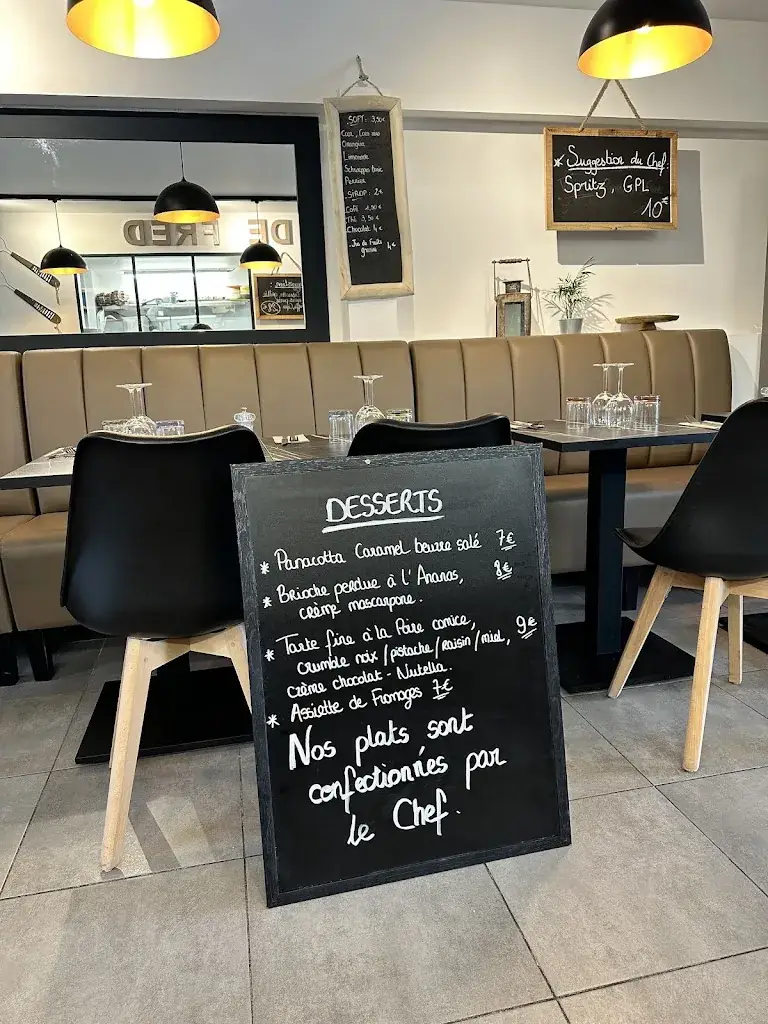 SOFT : 3,50€
Coca, Coca zero
Orangina
Limonade
Schweppes tonic
Perrier
SIROP : 2€
Café 1,90€
Thé 3,50€
Chocolat 4€
Jus de Fruits
4€
* Suggestion du Chef
Spritz, GPL
10€
DE FRED
DESSERTS
* Panacotta Caramel beurre salé 7€
* Brioche perdue à l'Ananas, 8€
crème mascarpone.
* Tarte fine à la Poire comice,
crumble noix/pistache/raisin/miel, 9€
crème chocolat-Nutella.
* Assiette de Fromages 7€
Nos plats sont
confectionnés par
le Chef.